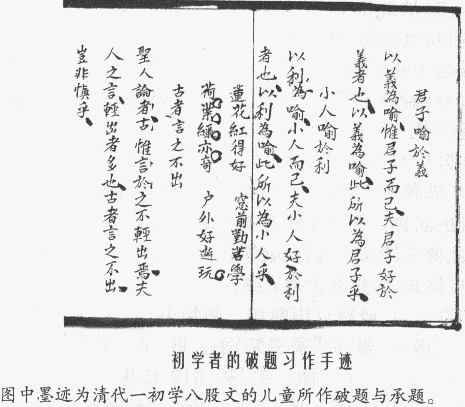 君子喻於義
以義為喻惟君子而已夫君子好於
義者也以義為喻此所以為君子乎
小人喻於利
以利為喻小人而已夫小人好於利
者也以利為喻此所以為小人乎
蓮花紅得好 窓前勤苦學
荷葉綠亦奇 戶外好遊玩
古者言之不出
聖人論者古惟言於之不輕出焉夫
人之言輕出者多也古者言之不出
豈非慎乎
初学者的破题习作手迹
图中墨迹为清代一初学八股文的儿童所作破题与承题。